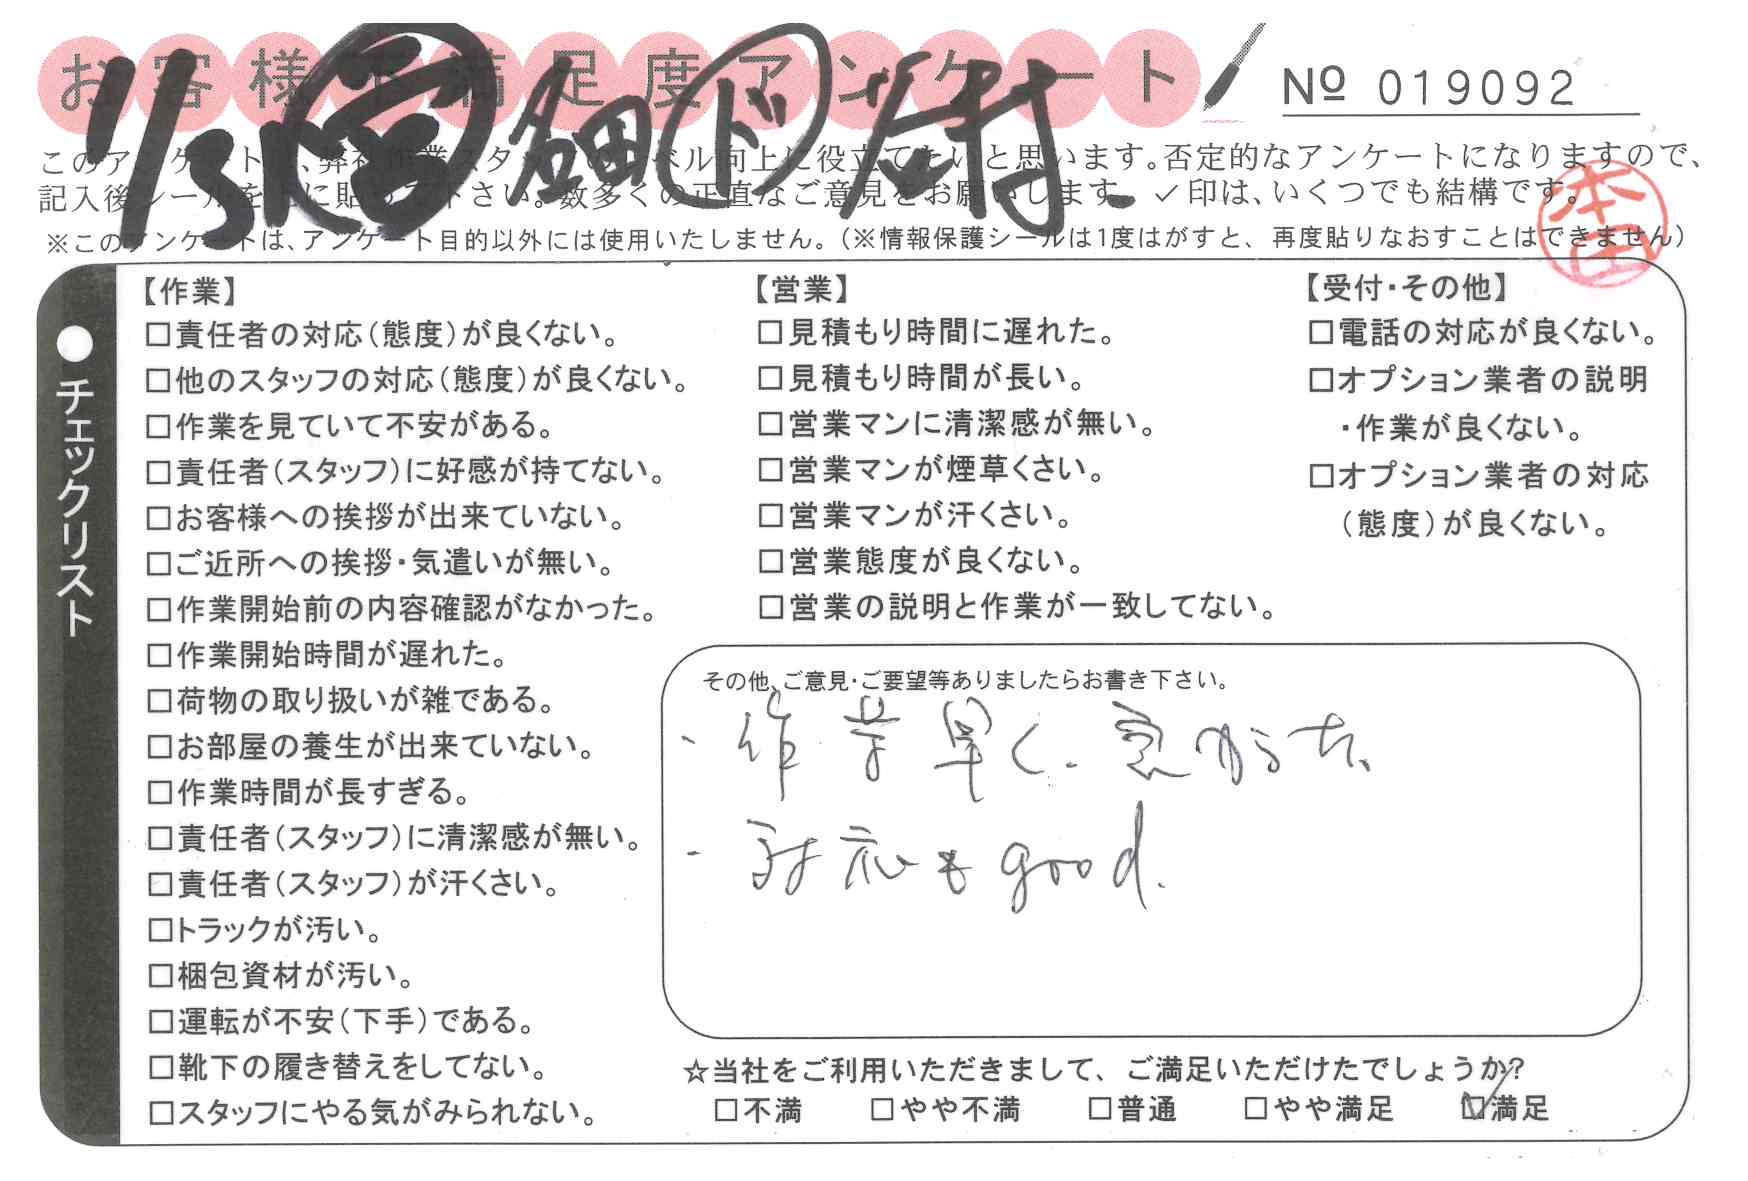 お客様不満足度アンケート
№ 019092
1/31 営 倉田 ド 木村
このアンケートは、弊社作業スタッフのレベル向上に役立てたいと思います。否定的なアンケートになりますので、
記入後シールを上に貼って下さい。数多くの正直なご意見をお願いします。✓印は、いくつでも結構です。
※このアンケートは、アンケート目的以外には使用いたしません。(※情報保護シールは1度はがすと、再度貼りなおすことはできません)
本田
●チェックリスト
【作業】
□責任者の対応(態度)が良くない。
□他のスタッフの対応(態度)が良くない。
□作業を見ていて不安がある。
□責任者(スタッフ)に好感が持てない。
□お客様への挨拶が出来ていない。
□ご近所への挨拶・気遣いが無い。
□作業開始前の内容確認がなかった。
□作業開始時間が遅れた。
□荷物の取り扱いが雑である。
□お部屋の養生が出来ていない。
□作業時間が長すぎる。
□責任者(スタッフ)に清潔感が無い。
□責任者(スタッフ)が汗くさい。
□トラックが汚い。
□梱包資材が汚い。
□運転が不安(下手)である。
□靴下の履き替えをしてない。
□スタッフにやる気がみられない。
【営業】
□見積もり時間に遅れた。
□見積もり時間が長い。
□営業マンに清潔感が無い。
□営業マンが煙草くさい。
□営業マンが汗くさい。
□営業態度が良くない。
□営業の説明と作業が一致してない。
【受付・その他】
□電話の対応が良くない。
□オプション業者の説明
・作業が良くない。
□オプション業者の対応
(態度)が良くない。
その他、ご意見・ご要望等ありましたらお書き下さい。
・作業早く、良かった。
・対応も good.
☆当社をご利用いただきまして、ご満足いただけたでしょうか?
□不満 □やや不満 □普通 □やや満足 ☑満足